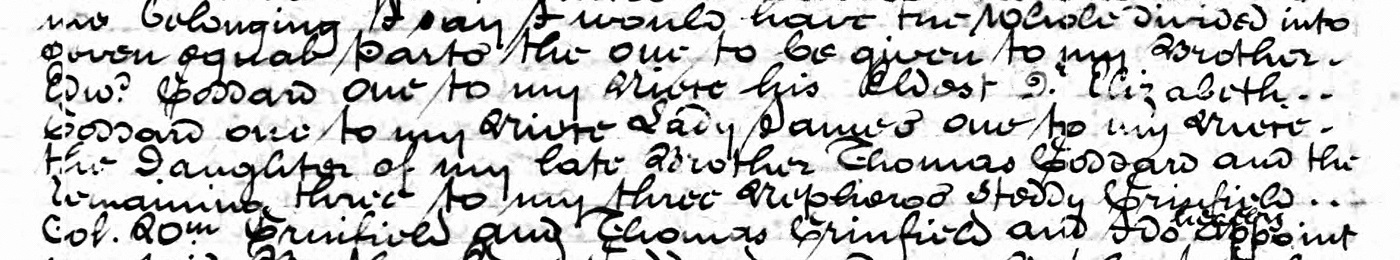 me belonging I say I would have the whole divided into
seven equal parts the one to be given to my Brother.
Edwd Goddard one to my Niece his Eldest D.r Elizabeth..
Goddard one to my Niece Lady James one to my Niece.
the Daughter of my late Brother Thomas Goddard and the
remaining three to my three Nephews Steddy Grinfield..
Col. Wm Grinfield and Thomas Grinfield and I do appoint